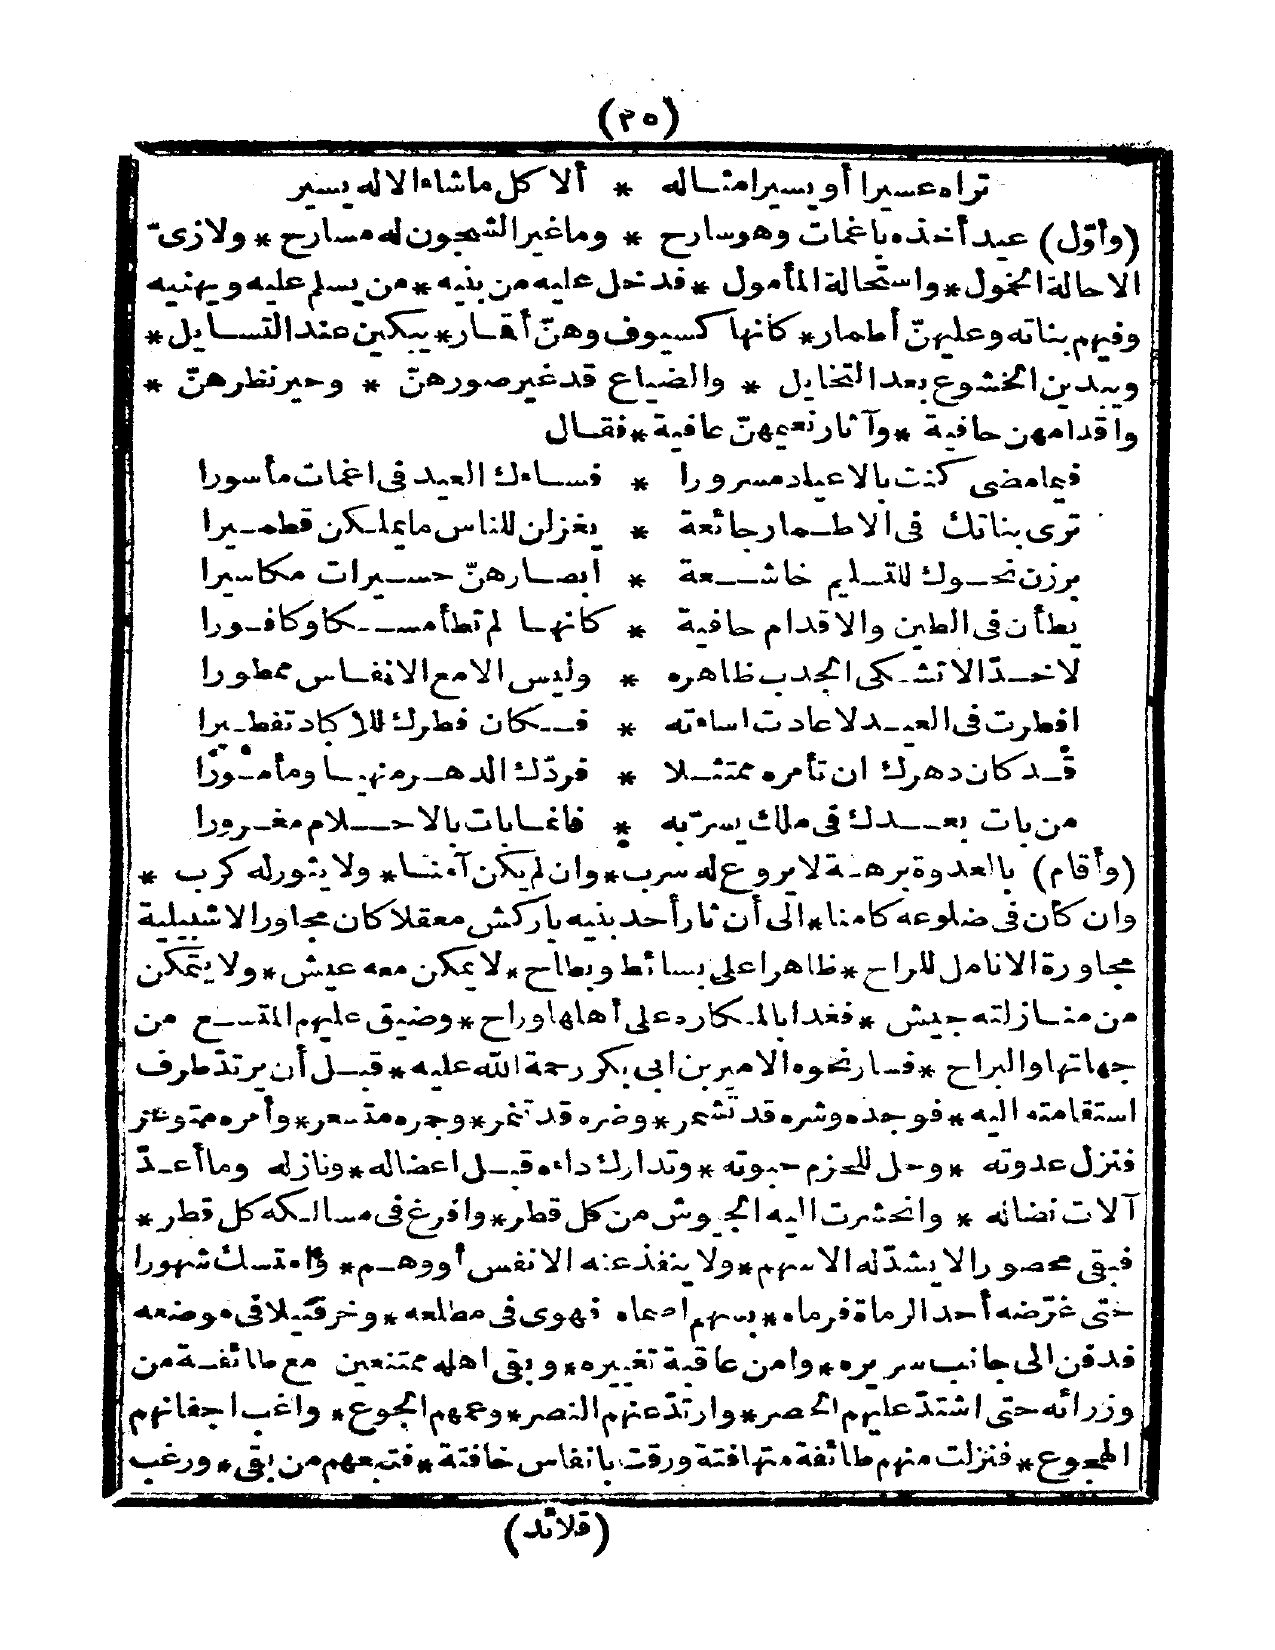 (٢٥)
تراه عسيرا أو يسيرا مثاله * ألا كل ما شاء الاله يسير
(وأوّل) عيد أخذه باغمات وهو سارح * وما غير الشجون له مسارح * ولا زىّ
الاحالة الخمول * واستحالة المأمول * فدخل عليه من بنيه * من يسلم عليه ويهنيه
وفيهم بناته وعليهنّ أطمار * كأنها كسوف وهنّ أقمار * يبكين عند التسايل *
ويبدين الخشوع بعد التخايل * والضياع قد غير صورهنّ * وحير نظرهنّ *
واقدامهن حافية * وآثار نعيمهنّ عافية * فقال
فيما مضى كنت بالاعياد مسرورا * فساءك العيد فى اغمات مأسورا
ترى بناتك فى الاطمار جائعة * يغزلن للناس ما يملكن قطميرا
برزن نحوك للتسليم خاشعة * ابصارهنّ حسيرات مكاسيرا
يطأن فى الطين والاقدام حافية * كانها لم تطأ مسكا وكافورا
لا خدّ الا تشكى الجدب ظاهره * وليس الا مع الانفاس ممطورا
افطرت فى العيد لا عادت اساءته * فكان فطرك للاكباد تفطيرا
قد كان دهرك ان تأمره ممتثلا * فردّك الدهر منهيا ومأمورا
من بات بعدك فى ملك يسرّ به * فانما بات بالاحلام مغرورا
(وأقام) بالعدوة برهة لا يروع له سرب * وان لم يكن آمنا * ولا يثور له كرب *
وان كان فى ضلوعه كامنا * الى أن ثار أحد بنيه باركش معقلا كان مجاورا لاشبيلية
مجاورة الانامل للراح * ظاهرا على بسائط وبطاح * لا يمكن معه عيش * ولا يتمكن
من منازلته جيش * فغدا بالمكاره على أهلها وراح * وضيق عليهم المتسع من
جهاتها والبراح * فسار نحوه الامير بن ابى بكر رحمة الله عليه * قبل أن يرتدّ طرف
استقامته اليه * فوجده وشره قد تشمر * وضره قد تنمر * وجره متسعر * وأمره متوعر
فنزل عدوته * وحل للحزم حبوته * وتدارك داءه قبل اعضاله * ونازله وما أعدّ
آلات نضاله * وانحشرت اليه الجيوش من كل قطر * وافرغ فى مسالكه كل قطر *
فبقى محصورا لا يشذّ له الا سهم * ولا ينفذ عنه الا نفس أو وهم * وامتسك شهورا
حتى عرّضه أحد الرماة فرماه * بسهم اصماه فهوى فى مطلعه * وخر قتيلا فى موضعه
فدفن الى جانب سريره * وامن عاقبة تغييره * وبقى اهله ممتنعين مع طائفة من
وزرائه حتى اشتدّ عليهم الحصر * وارتدّ عنهم النصر * وعمهم الجوع * واغب اجفانهم
الهجوع * فنزلت منهم طائفة متهافتة ورقت بانفاس خافتة * فتبعهم من بقى * ورغب
(قلائد)